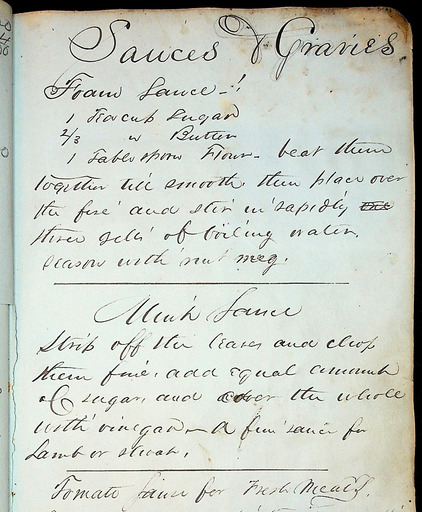 Sauces & Gravies
Foam Sauce -
1 Teacup Sugar
2/3 " Butter
1 Tablespoon Flour - beat them
together till smooth, then place over
the fire and stir in rapidly
three gills of boiling water.
Season with nut meg.
Mint Sauce
Strip off the leaves and chop
them fine, add equal amount
of sugar, and cover the whole
with vinegar - A fine sauce for
Lamb or steak.
Tomato Sauce for Fresh Meats.